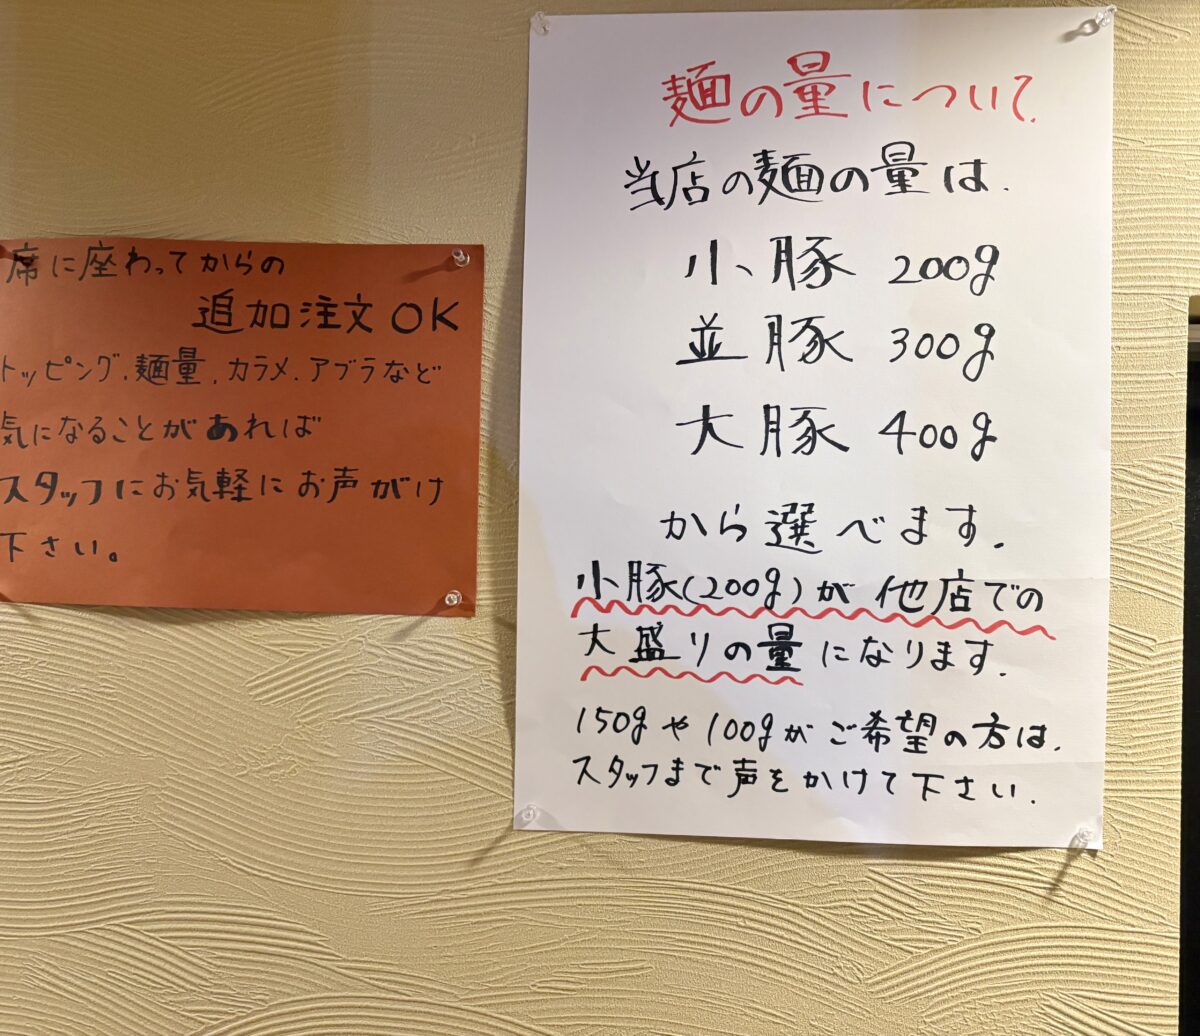 席に座わってからの
追加注文OK
トッピング、麺量、カラメ、アブラなど
気になることがあれば
スタッフにお気軽にお声がけ
下さい。
麺の量について
当店の麺の量は、
小豚 200g
並豚 300g
大豚 400g
から選べます。
小豚(200g)が他店での
大盛りの量になります。
150gや100gがご希望の方は、
スタッフまで声をかけて下さい。